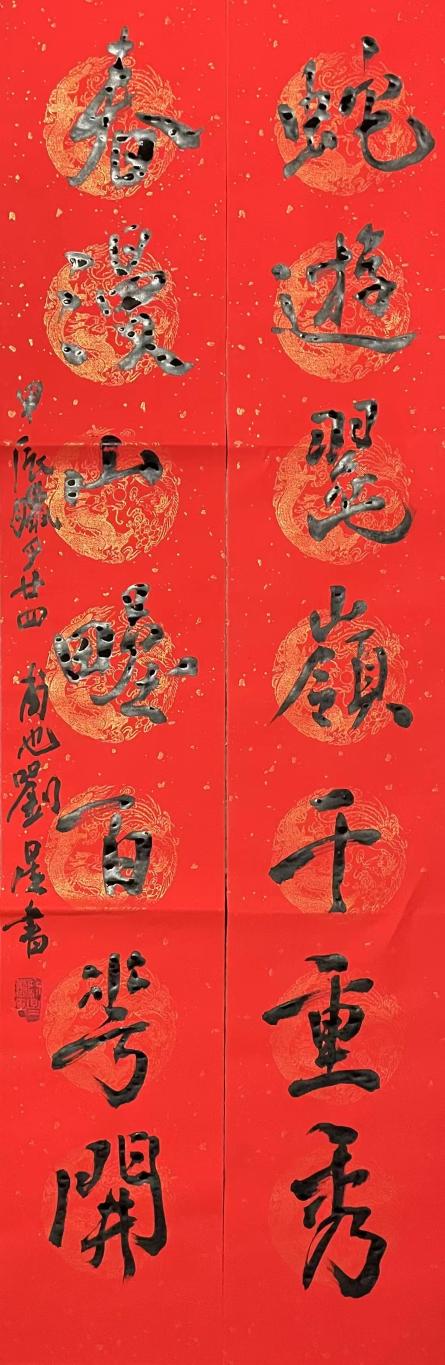 蛇遊翠嶺千重秀
春漫山野百花開
甲辰臘月廿四 劉星書